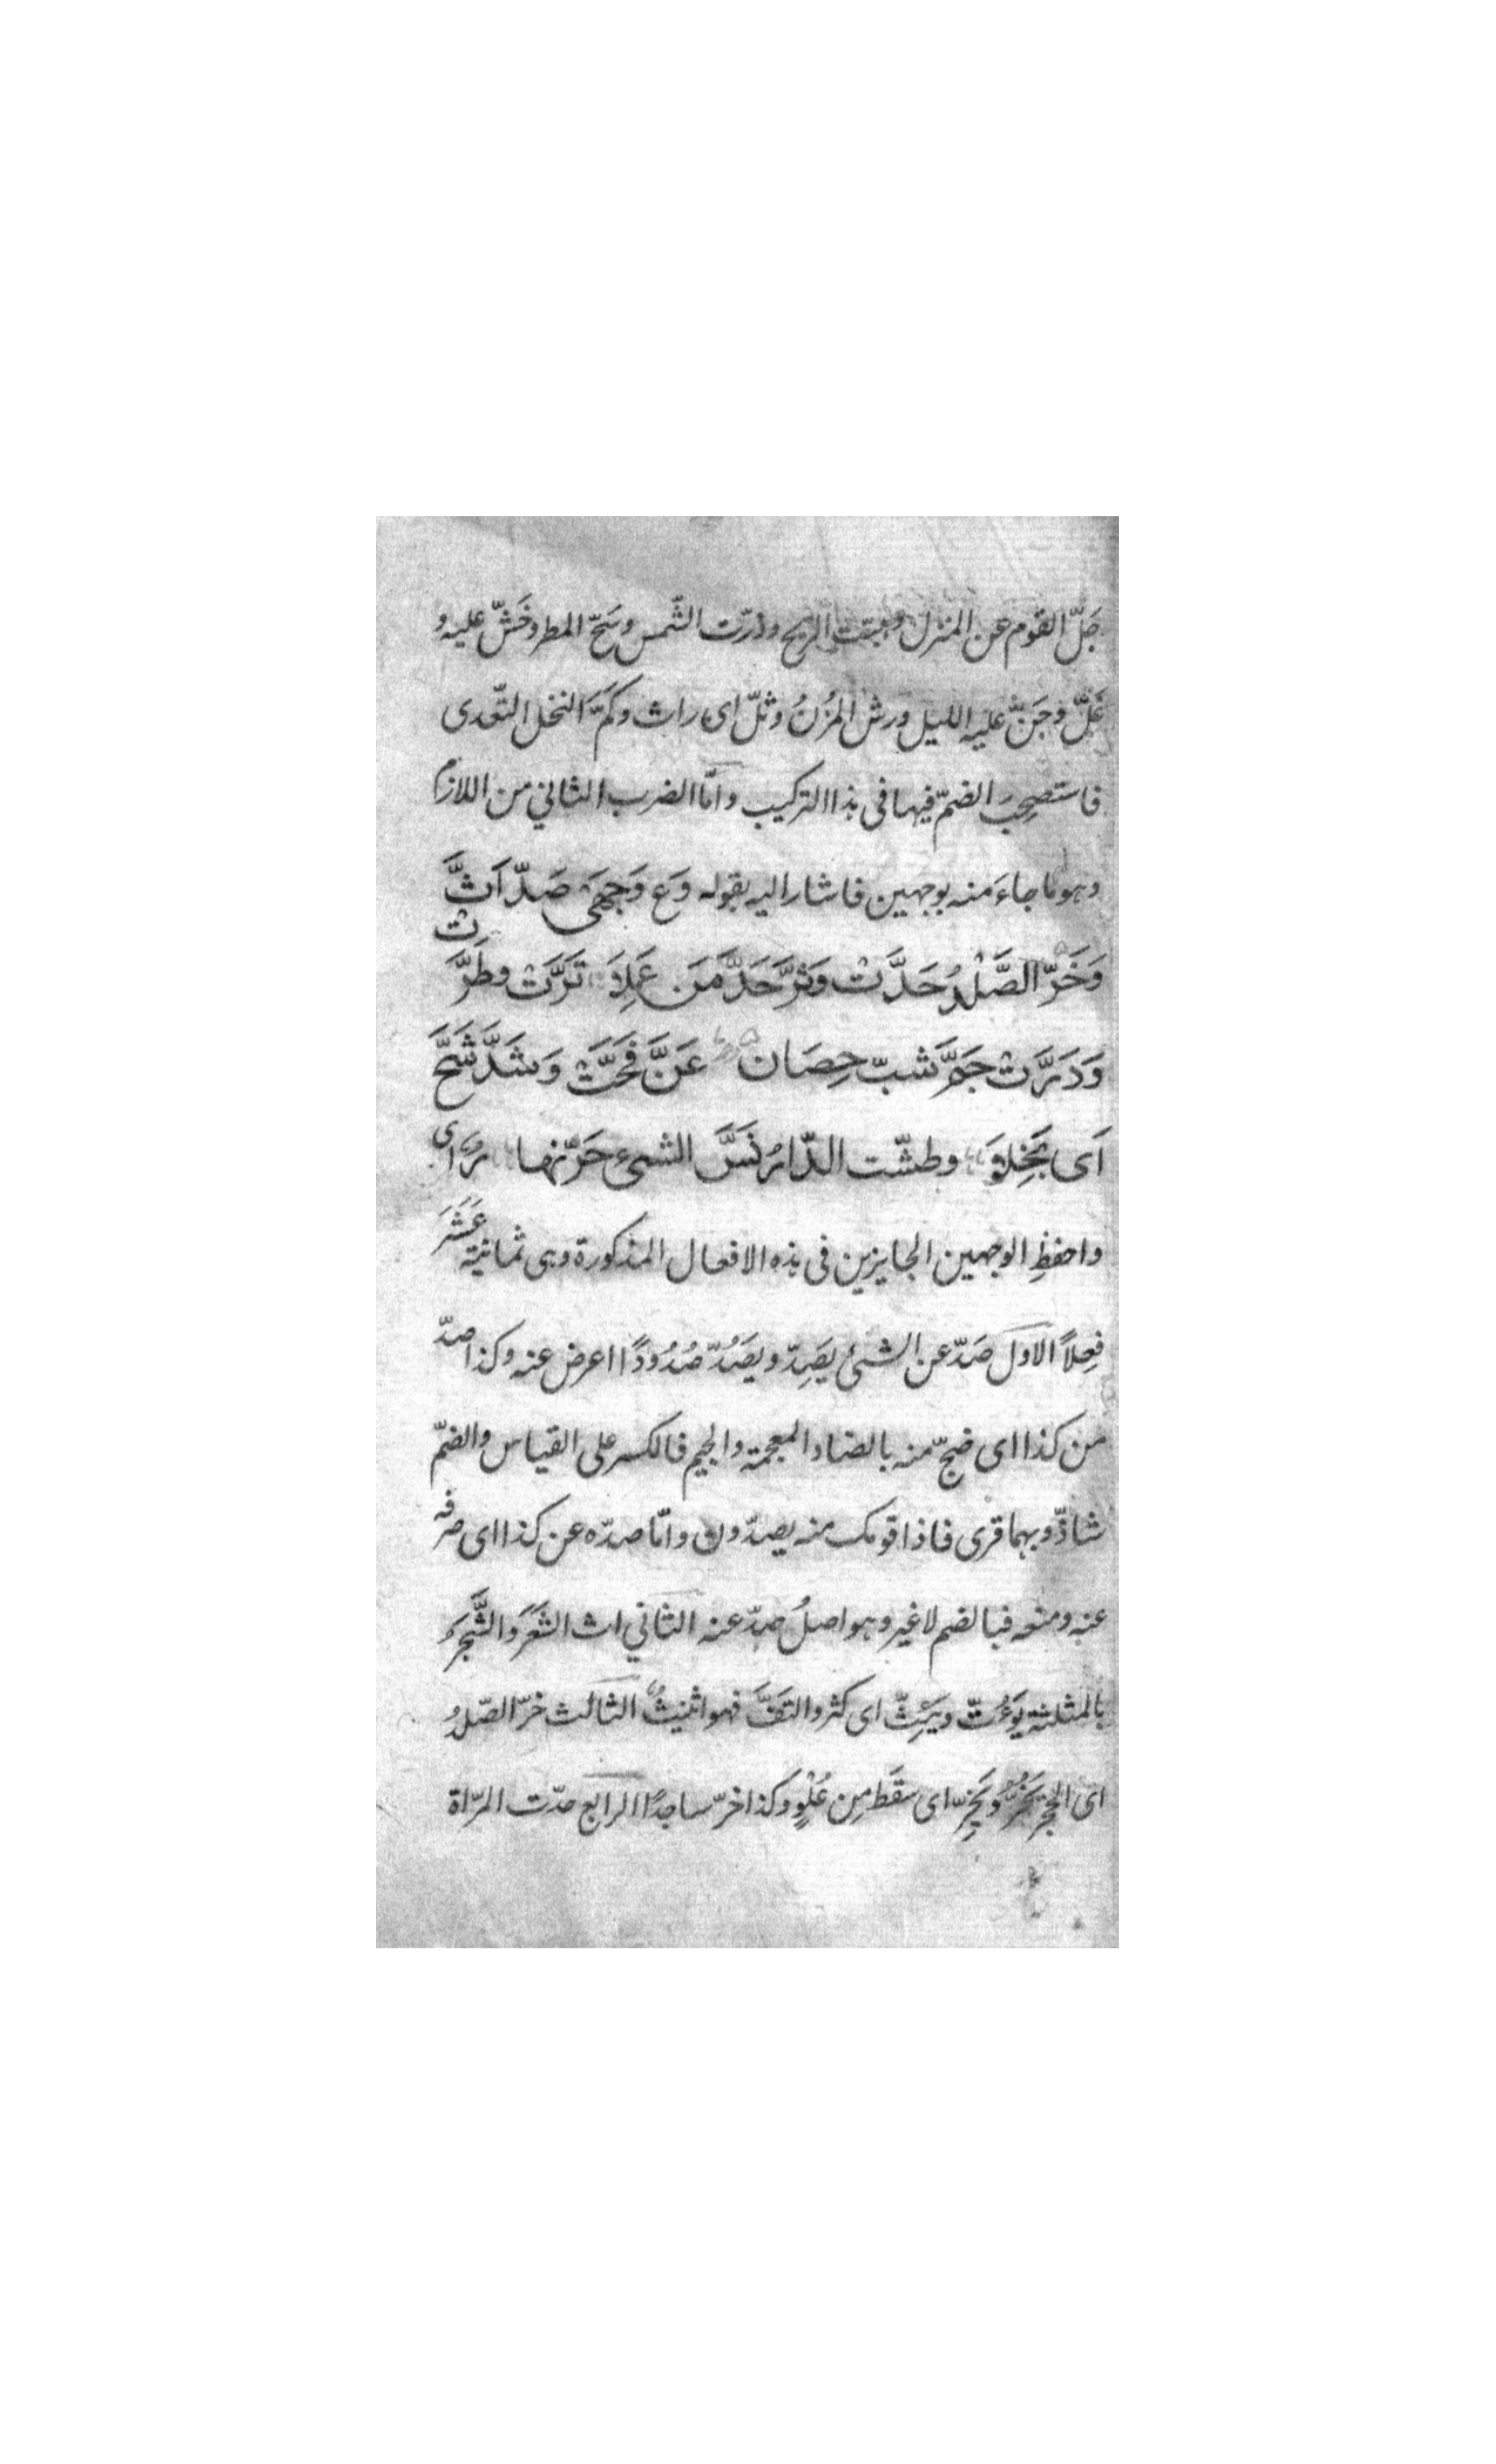 جَلّ القوم عن المنزل وهبّت الريح وذرّت الشّمس وسَحّ المطر وخَشّ عليه و
غَلّ وجَنّ عليه الليل ورش المُزْنُ وثلّ اى راث وكَمَّ النخل التّعدى
فاستصحِبَ الضمّ فيها فى هذا التركيب وامّا الضرب الثاني من اللازم
وهو ما جاءَ منه بوجهين فاشار اليه بقوله وَعِ وَجهَىْ صَدّ اَثَّ
وَخَرّ الصَّلْدُ حَدَّتْ وَثَرَّ جَدَّ مَن عَمِلَا تَرَّتْ وطَرَّتْ
وَدَرَّتْ جَمَّ شبّ حِصَان عَنَّ فَحَّتْ وَشَذَّ شَحَّ
اَى بَخِلَا وطشّت الدّارُ نَسَّ الشىء حَرّ نها رٌ اى
واحفظِ الوجهين الجايزين فى هذه الافعال المذكورة وهى ثمانية عَشَرَ
فِعِلاً الاول صَدّ عن الشئ يَصِدّ ويَصُدّ صُدُودًا اعرض عنه وكذا صدّ
من كذا اى ضجّ منه بالضاد المعجمة والجيم فالكسر على القياس والضمّ
شاذّ وبهما قرى فاذا قومك منه يصدّون وامّا صدّه عن كذا اى صرفه
عنه ومنعه فبالضم لا غير وهو اصلُ صدّ عنه الثاني اث الشَعَرُ والشَّجَرُ
بالمثلثة يَوُءُثّ ويَئِثّ اى كثر والتَفَّ فهو اثيثٌ الثالث خرّ الصّلدُ
اى الحجر يَخُرّ ويَخِرّ اى سقَط مِن عُلْوٍ وكذا خرّ ساجدًا الرابع حدّت المرّاة